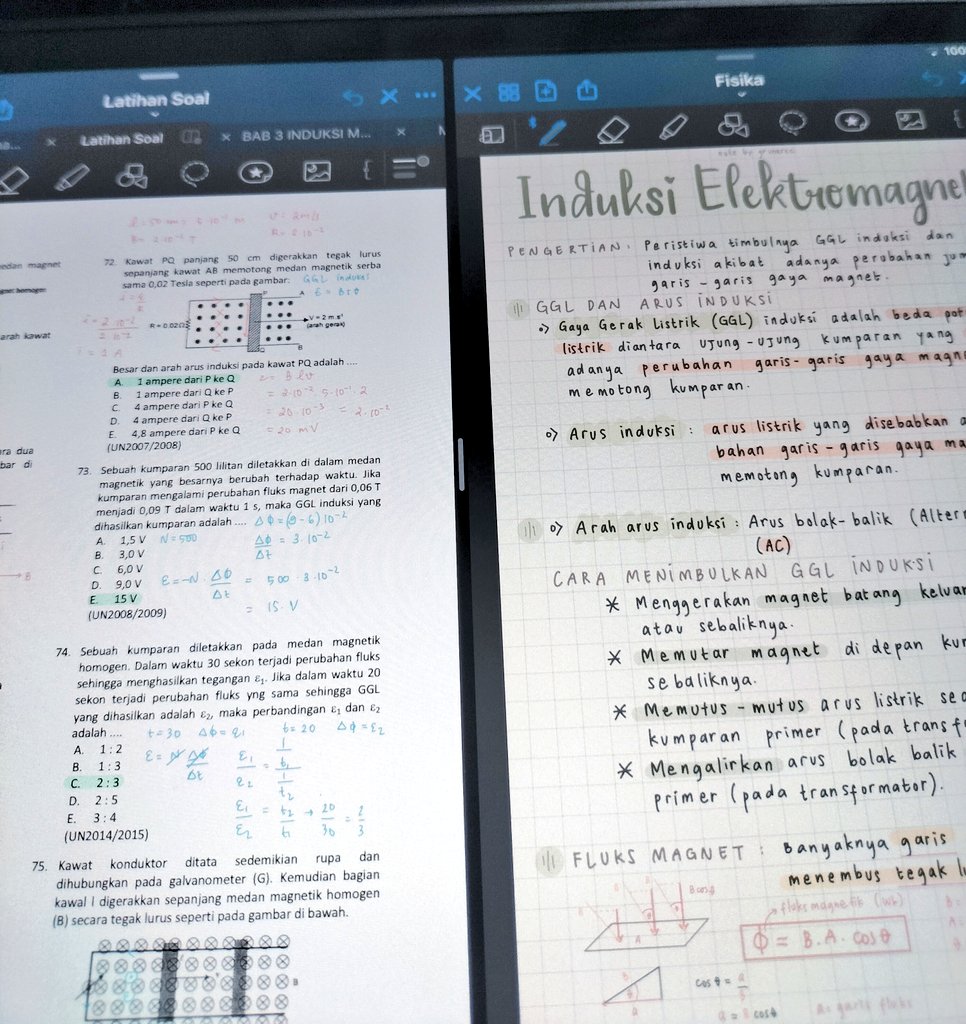 100
Latihan Soal
Latihan Soal
BAB 3 INDUKSI M...
72. Kawat PQ panjang 50 cm digerakkan tegak lurus
sepanjang kawat AB memotong medan magnetik serba
sama 0,02 Tesla seperti pada gambar: GGL induksi
P
A
R = 0.02Ω
V = 2 m.s¹
(arah gerak)
Q
B
Besar dan arah arus induksi pada kawat PQ adalah ....
A. 1 ampere dari P ke Q
B. 1 ampere dari Q ke P
C. 4 ampere dari P ke Q
D. 4 ampere dari Q ke P
E. 4,8 ampere dari P ke Q
(UN2007/2008)
i = 1 A
= 2.10⁻². 5.10⁻¹. 2
= 20.10⁻³ = 2.10⁻²
= 20 mV
edan magnet
arah kawat
ra dua
bar di
B
73. Sebuah kumparan 500 lilitan diletakkan di dalam medan
magnetik yang besarnya berubah terhadap waktu. Jika
kumparan mengalami perubahan fluks magnet dari 0,06 T
menjadi 0,09 T dalam waktu 1 s, maka GGL induksi yang
dihasilkan kumparan adalah .... ΔΦ = (9 - 6) 10⁻²
A. 1,5 V N = 500
B. 3,0 V
C. 6,0 V
D. 9,0 V
E. 15 V
(UN2008/2009)
ΔΦ/Δt = 3.10⁻²
ε = -N . ΔΦ/Δt = 500 . 3.10⁻²
= 15 . V
74. Sebuah kumparan diletakkan pada medan magnetik
homogen. Dalam waktu 30 sekon terjadi perubahan fluks
sehingga menghasilkan tegangan ε₁. Jika dalam waktu 20
sekon terjadi perubahan fluks yng sama sehingga GGL
yang dihasilkan adalah ε₂, maka perbandingan ε₁ dan ε₂
adalah .... t = 30 ΔΦ = ε₁ t = 20 ΔΦ = ε₂
A. 1 : 2
B. 1 : 3
C. 2 : 3
D. 2 : 5
E. 3 : 4
(UN2014/2015)
ε = N ΔΦ/Δt
ε₁/ε₂ = 1/t₁ / 1/t₂
ε₁/ε₂ = t₂/t₁ → 20/30 = 2/3
75. Kawat konduktor ditata sedemikian rupa dan
dihubungkan pada galvanometer (G). Kemudian bagian
kawal I digerakkan sepanjang medan magnetik homogen
(B) secara tegak lurus seperti pada gambar di bawah.
B
Fisika
Induksi Elektromagne
PENGERTIAN : Peristiwa timbulnya GGL induksi dan
induksi akibat adanya perubahan jum
garis - garis gaya magnet.
GGL DAN ARUS INDUKSI
Gaya Gerak Listrik (GGL) induksi adalah beda pot
listrik diantara ujung - ujung kumparan yang
adanya perubahan garis - garis gaya magn
memotong kumparan.
Arus induksi : arus listrik yang disebabkan
bahan garis - garis gaya ma
memotong kumparan.
Arah arus induksi : Arus bolak - balik (Alter
(AC)
CARA MENIMBULKAN GGL INDUKSI
* Menggerakan magnet batang keluar
atau sebaliknya.
* Memutar magnet di depan kum
sebaliknya.
* Memutus - mutus arus listrik sec
kumparan primer (pada transf
* Mengalirkan arus bolak balik
primer (pada transformator).
FLUKS MAGNET : Banyaknya garis
menembus tegak l
B cos θ
A
fluks magnetik (Wb)
Φ = B. A. cos θ
cos θ = a/B
a = B cos θ